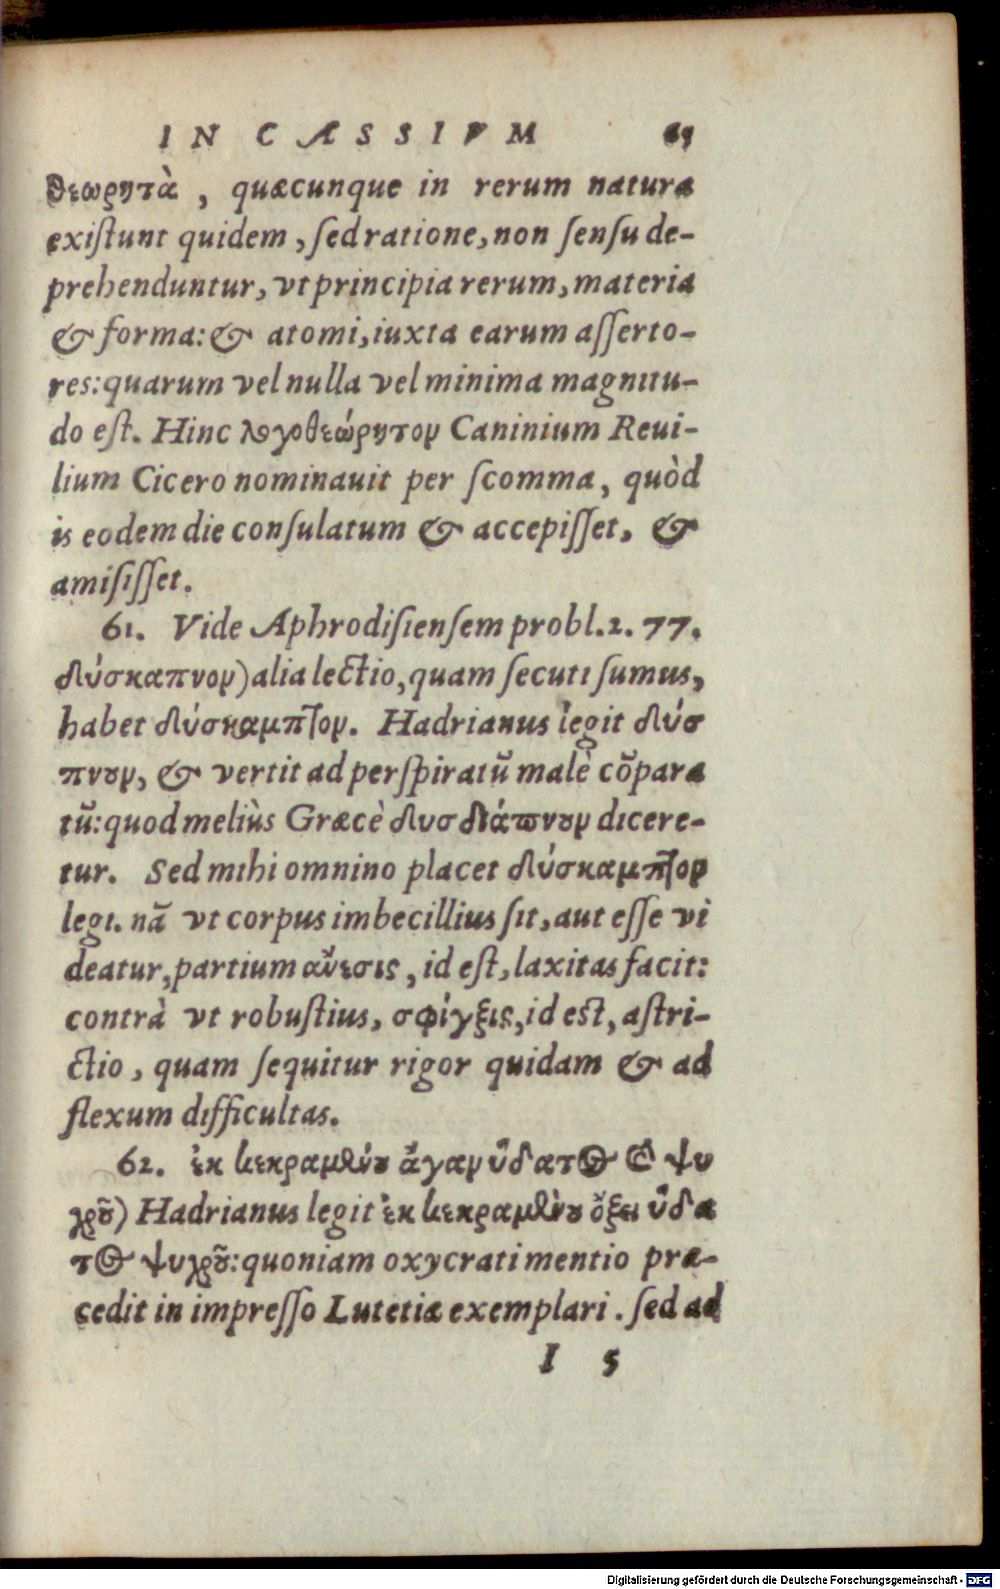 IN CASSIVM 65
θεωρητὰ, quæcunque in rerum natura
existunt quidem, sed ratione, non sensu de-
prehenduntur, vt principia rerum, materia
& forma: & atomi, iuxta earum asserto-
res: quarum vel nulla vel minima magnitu-
do est. Hinc λογοθεώρητον Caninium Reui-
lium Cicero nominauit per scomma, quòd
is eodem die consulatum & accepisset, &
amisisset.
61. Vide Aphrodisiensem probl. 2. 77.
δύσκαπνον) alia lectio, quam secuti sumus,
habet δύσκαμπτον. Hadrianus legit δύσ
πνουν, & vertit ad perspiratũ malè cõpara
tũ: quod meliùs Græcè δυσδιάπνουν dicere-
tur. Sed mihi omnino placet δύσκαμπτον
legi. nã vt corpus imbecillius sit, aut esse vi
deatur, partium ἄνεσις, id est, laxitas facit:
contrà vt robustius, σφίγξις, id est, astri-
ctio, quam sequitur rigor quidam & ad
flexum difficultas.
62. ἐκ κεκραμένου ἄγαν ὕδατος καὶ ψυ
χροῦ) Hadrianus legit ἐκ κεκραμένου ὄξει ὕδα
τος ψυχροῦ: quoniam oxycrati mentio præ-
cedit in impresso Lutetiæ exemplari. sed ad
I 5
Digitalisierung gefördert durch die Deutsche Forschungsgemeinschaft - DFG